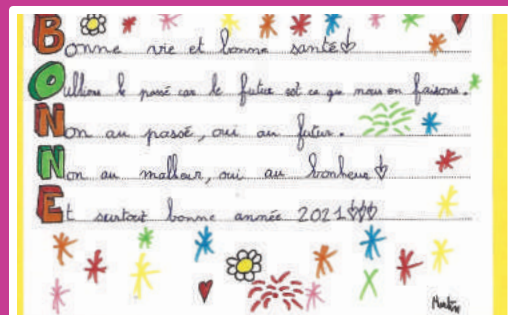 Bonne vie et bonne santé
Oublions le passé car le futur est ce que nous en faisons.
Non au passé, oui au futur.
Non au malheur, oui au bonheur
Et surtout bonne année 2021